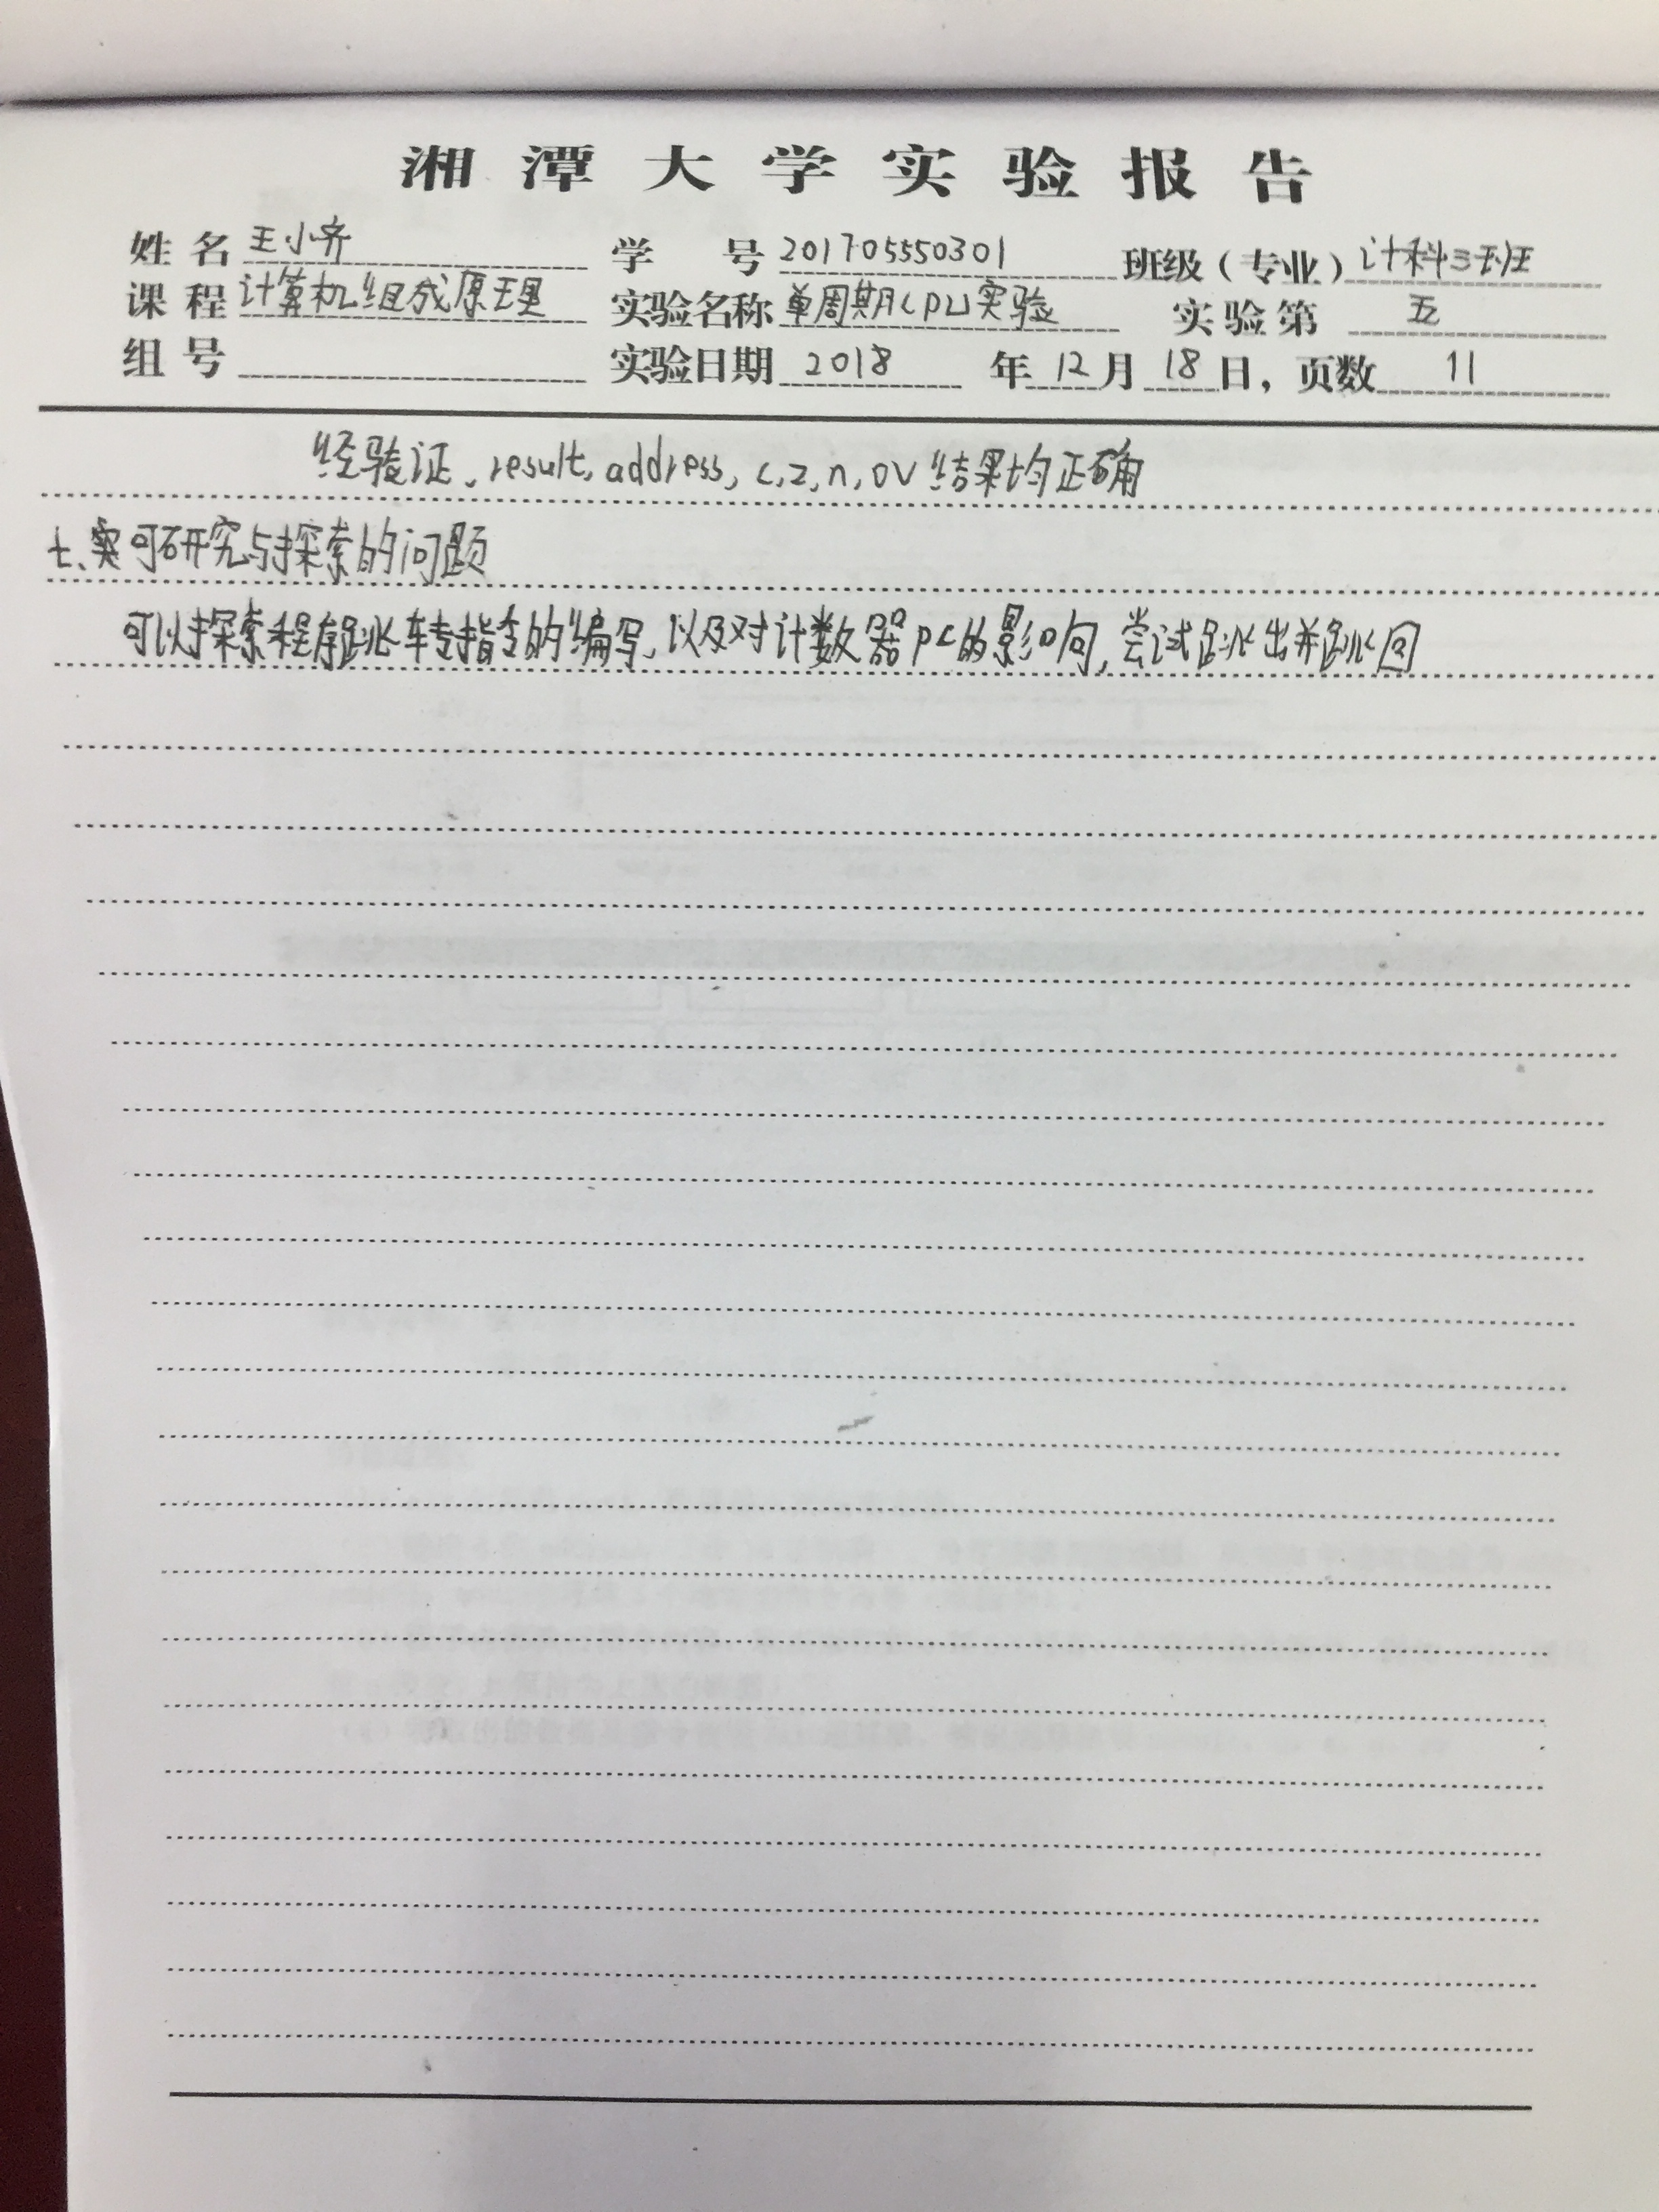 湘潭大学实验报告
姓名 王小齐 学号 201705550301 班级(专业) 计科三班
课程 计算机组成原理 实验名称 单周期CPU实验 实验第 五
组号 实验日期 2018 年 12 月 18 日, 页数 11
经验证, result, address, c, z, n, ov 结果均正确
七、实可研究与探索的问题
可以探索程序跳转指令的编写, 以及对计数器PC的影响, 尝试跳出并跳回